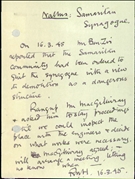 Nablus: Samaritan
Synagogue.
On 16.3.45 Mr Ben Zvi
reported that the Samaritan
community had been ordered to
quit the synagogue with a view
to demolition as a dangerous
structure.
Rang up Mr McGillivray
& asked him to delay proceedings
we could inspect the
the Engineers & decide
on what works were necessary.
McGillivray agreed,
will arrange a meeting letting
us know
16.3.45